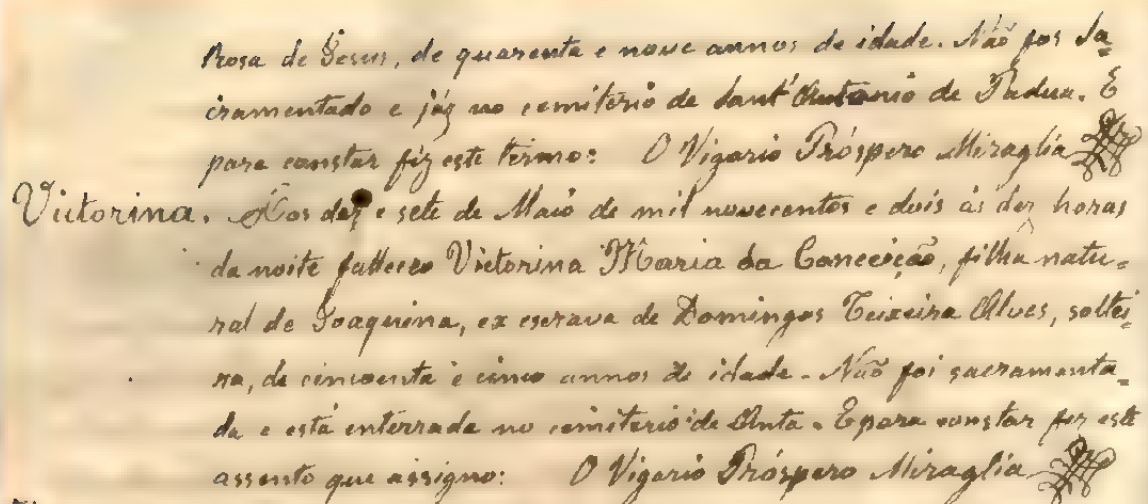 Rosa de Jesus, de quarenta e nove annos de idade. Não foi sa=
cramentado e jáz no cemiterio de Sant'Antonio de Padua. E
para constar fiz este termo: O Vigario Próspero Miraglia
Victorina. Aos dez e sete de Maio de mil novecentos e dois ás dez horas
da noite falleceo Victorina Maria da Conceição, filha natu=
ral de Joaquina, ex escrava de Domingos Teixeira Alves, soltei=
ra, de cincoenta e cinco annos de idade. Não foi sacramenta=
da e está enterrada no cemiterio de Anta. E para constar fiz este
assento que assigno: O Vigario Próspero Miraglia